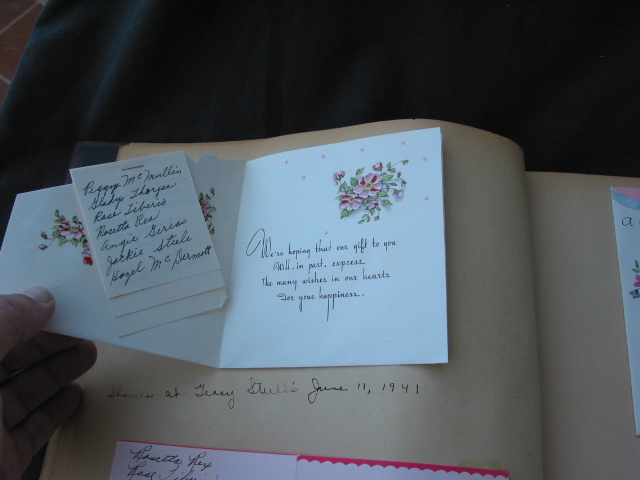 Peggy McMullin
Gladys Thorpse
Rose Liberio
Rosetta Rex
Angie Gerias
Jackie Steele
Hazel McDermott
We're hoping that our gift to you
Will, in part, express
The many wishes in our hearts
For your happiness.
at Terry Steele's June 11, 1941
Rosetta Rex
Rose
a